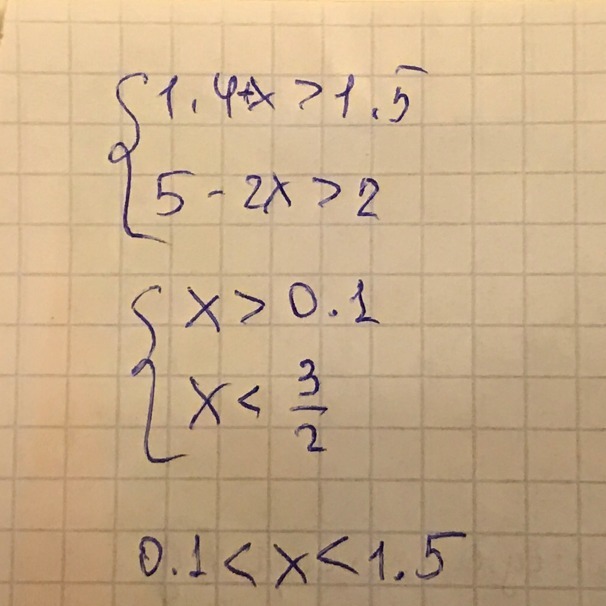 1.4+x > 1.5
5 - 2x > 2
x > 0.1
x < 3/2
0.1 < x < 1.5